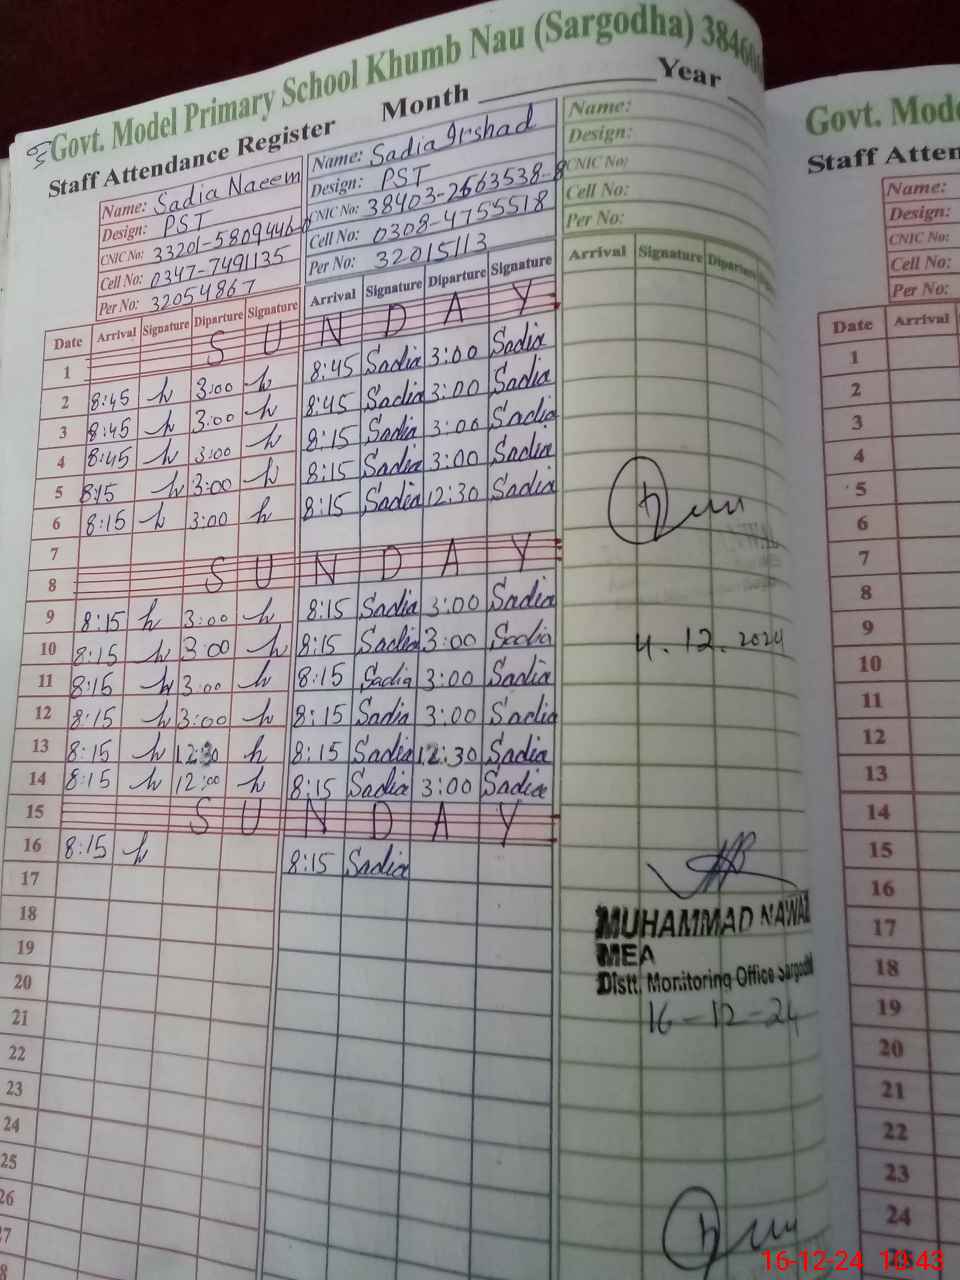 Govt. Model Primary School Khumb Nau (Sargodha) 3846
Staff Attendance Register Month Year
Name: Sadia Naeem Name: Sadia Irshad Name:
Design: PST Design: PST Design:
CNIC No: 33201-5809446- CNIC No: 38403-2663538-8 CNIC No:
Cell No: 0347-7491135 Cell No: 0308-4755518 Cell No:
Per No: 32054867 Per No: 32015113 Per No:
Date Arrival Signature Diparture Signature Arrival Signature Diparture Signature Arrival Signature Diparture
1 S U N D A Y
2 8:45 h 3:00 h 8:45 Sadia 3:00 Sadia
3 8:45 h 3:00 h 8:45 Sadia 3:00 Sadia
4 8:45 h 3:00 h 8:15 Sadia 3:00 Sadia
5 8:15 h 3:00 h 8:15 Sadia 3:00 Sadia
6 8:15 h 3:00 h 8:15 Sadia 12:30 Sadia
7
8 S U N D A Y
9 8:15 h 3:00 h 8:15 Sadia 3:00 Sadia
10 8:15 h 3:00 h 8:15 Sadia 3:00 Sadia
4.12.2024
11 8:15 h 3:00 h 8:15 Sadia 3:00 Sadia
12 8:15 h 3:00 h 8:15 Sadia 3:00 Sadia
13 8:15 h 12:30 h 8:15 Sadia 12:30 Sadia
14 8:15 h 12:00 h 8:15 Sadia 3:00 Sadia
15 S U N D A Y
16 8:15 h 8:15 Sadia
17
18
19
20
21
22
23
24
25
26
MUHAMMAD NAWAZ
MEA
Distt. Monitoring Office Sargodh
16-12-24
Govt. Mode
Staff Atten
Name:
Design:
CNIC No:
Cell No:
Per No:
Date Arrival
1
2
3
4
5
6
7
8
9
10
11
12
13
14
15
16
17
18
19
20
21
22
23
24
16-12-24 10:43